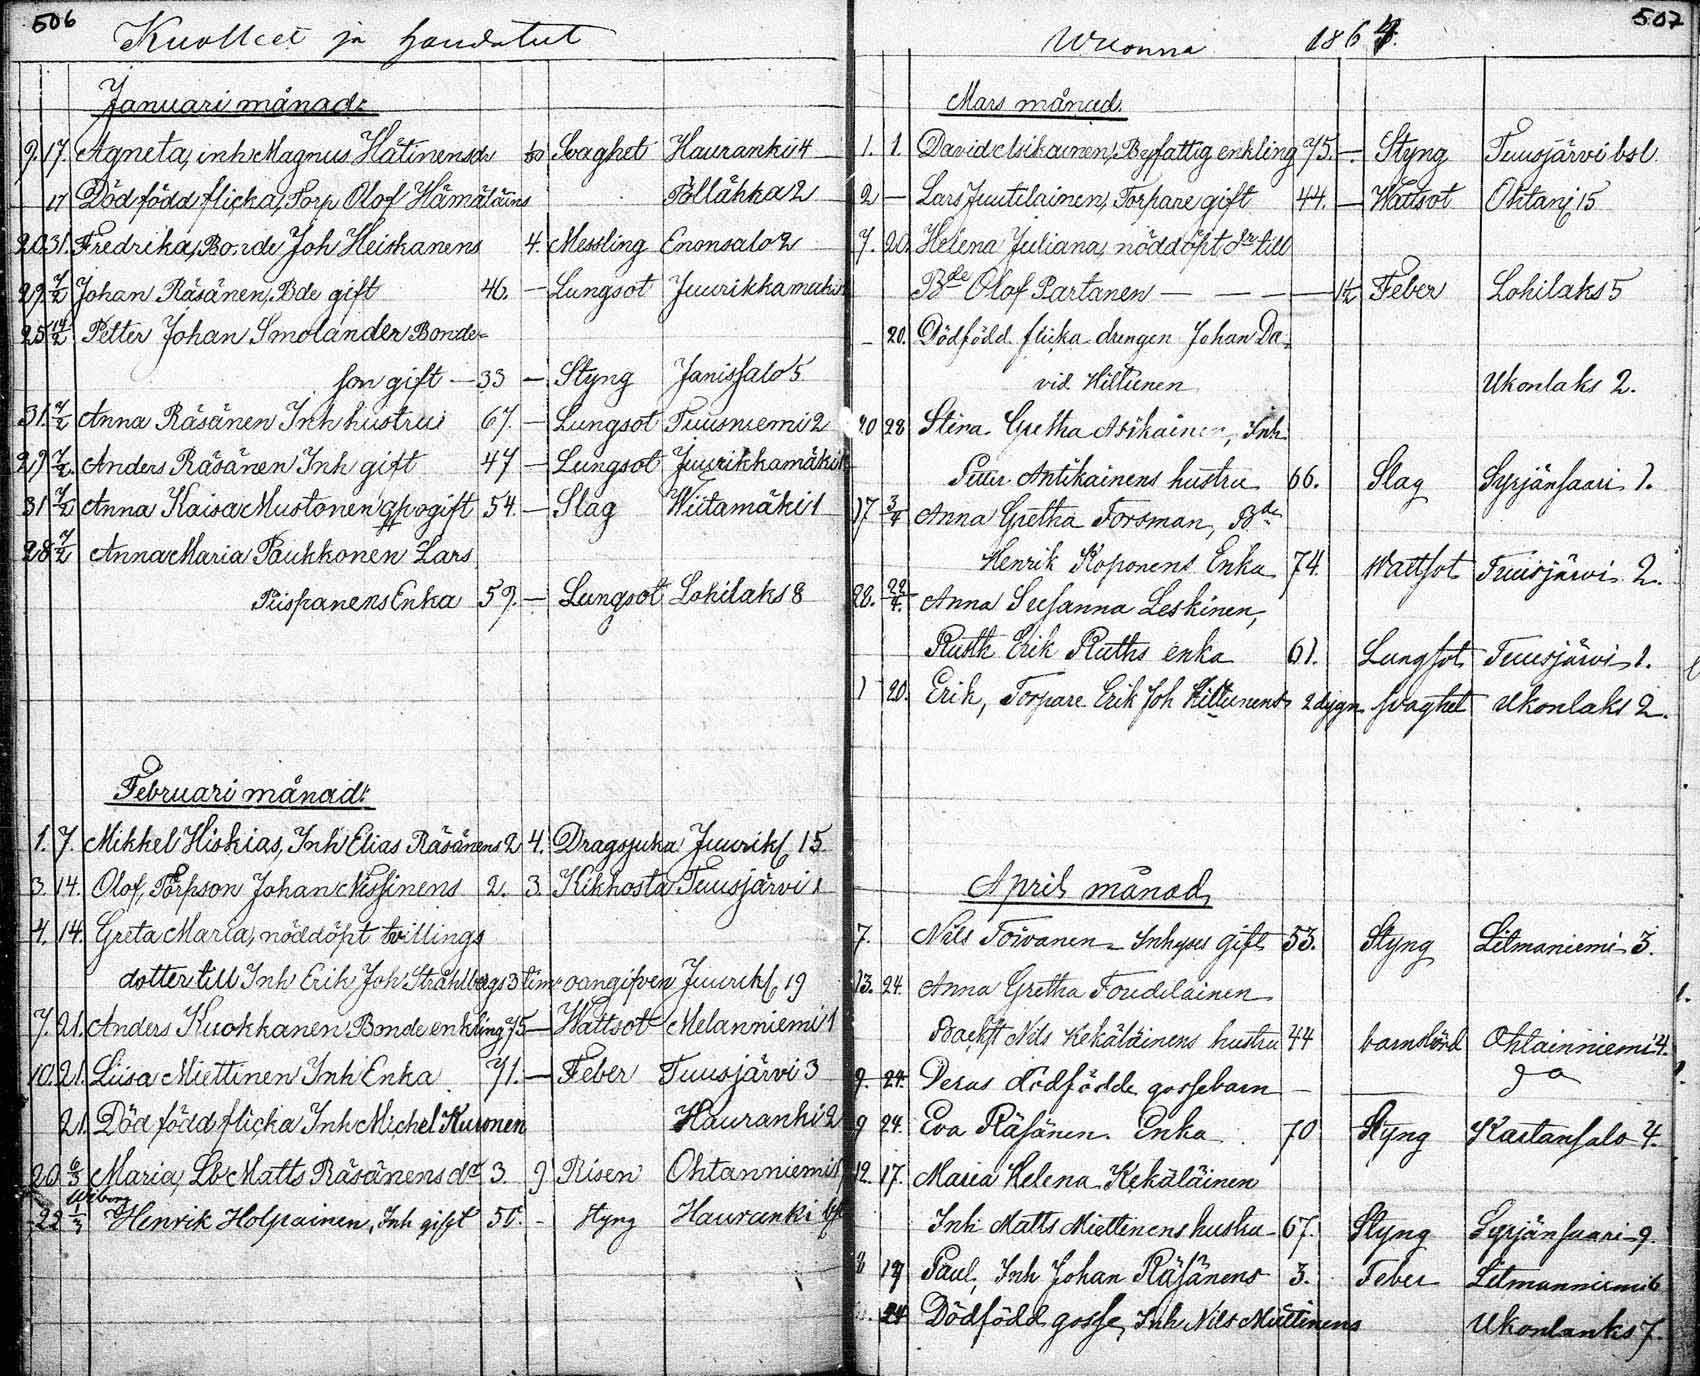 506
Kuolleet ja haudatut
Januari månad:
9. 17. Agneta, inh Magnus Hätinens dr Svaghet Hauranki 4
17 Död född flicka, Torp Olof Hämäläins Pölläkkä 2
20 31. Fredrika, Bonde Joh Heiskanens 4. Messling Enonsalo 2
29 7/2 Johan Räsänen, Bde gift 46. — Lungsot Juurikkamäki
25 14/2 Petter Johan Smolander Bonde=
son gift — 33 — Styng Janissalo 5
31. 7/2 Anna Räsänen Inh hustru 67. — Lungsot Tuusniemi 2
29 7/2. Anders Räsänen Inh gift 47 — Lungsot Juurikkamäki
31 7/2 Anna Kaisa Mustonen ogift 54. — Slag Wiitamäki 1
28 7/2 Anna Maria Paukkonen Lars
Piispanens Enka 59. — Lungsot Lohilaks 8
Februari månad:
1. 7. Mikkel Hiskias, Inh Elias Räsänens 2 4. Dragsjuka Juurikk 15
3. 14. Olof, Torpson Johan Nissinens 2. 3 Kikhosta Tuusjärvi 1
4. 14. Greta Maria, nöddöpt tvillings
dotter till Inh Erik Joh Stråhlbergs 3 tim oangifven Juurikk 19
7. 21. Anders Kuokkanen Bonde enkling 75 — Wattsot Melanniemi 1
10. 21. Liisa Miettinen Inh Enka 71. — Feber Tuusjärvi 3
21. Död född flicka Inh Michel Kuronen Hauranki 2
20 6/3 Maria, Lb Matts Räsänens dr 3. 9. Risen Ohtanniemi
Wiborg
22 1/3 Henrik Holpainen, Inh gift 50. - Styng Hauranki
507
Wuonna 1864.
Mars månad.
1. 1. David Asikainen, Bef fattig enkling 75. —. Styng Tuusjärvi bol
2 — Lars Juutilainen, Torpare gift 44. — Wattsot Ohtan 15
7. 20. Helena Juliana, nöddöpt dr till
Bde Olof Partanen — — — — 1/2 Feber Lohilaks 5
— 20. Dödfödd flicka drengen Johan Da=
vid Hiltunen Ukonlaks 2.
20 28 Stina Gretha Asikainen, Inh
Petter Antikainens hustru 66. Slag Syrjänsaari 1.
17 3/4 Anna Gretha Forsman, Bde
Henrik Koponens Enka 74. Wattsot Tuusjärvi 2.
28. 4. Anna Susanna Leskinen,
Rusth Erik Ruths enka 61. Lungsot Tuusjärvi 1.
1 20. Erik, Torpare Erik Joh Hiltunens 2 dygn svaghet Ukonlaks 2.
April månad,
7. Nils Toivanen Inhyses gift 53. Styng Litmaniemi 3.
13. 24. Anna Gretha Toudelainen
Nils Kekäläinens hustru 44 barnsbörd Ohtainniemi 4.
9. 24. Deras dödfödde gossebarn — — do
9 24. Eva Räsänen Enka 70 Styng Kartansalo 4.
12. 17. Maria Helena Kekäläinen
Inh Matts Miettinens hustru 67. Styng Syrjänsaari 9.
8 17 Paul, Inh Johan Räsänens 3. Feber Litmanniemi 6
24 Dödfödd gosse, Inh Nils Miettinens Ukonlanks 7.